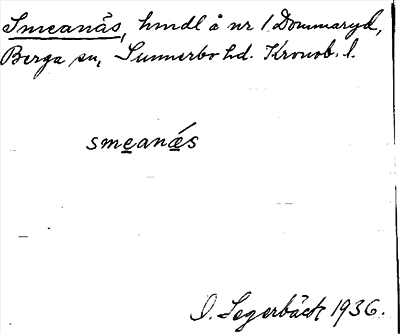 Smeanäs, hmdl å nr 1 Dommaryd,
Berga sn, Sunnerbo hd. Kronob. l.
smeanǽs
O. Segerbäck 1936.